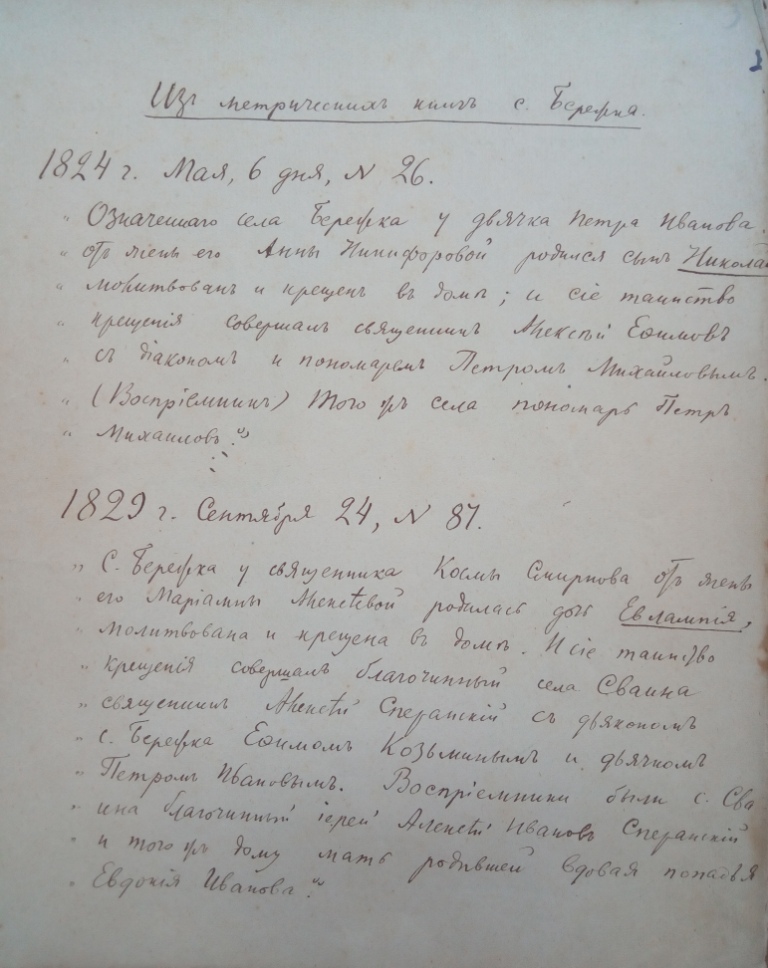 Изъ метрическихъ книгъ с. Бережка.
1824 г. Мая, 6 дня, N 26.
„ Означеннаго села Бережка у дьячка Петра Иванова
„ отъ жены его Анны Никифоровой родился сынъ Николай
„ молитвованъ и крещенъ въ домѣ; и сіе таинство
„ крещенія совершалъ священникъ Алексѣй Ефимовъ
„ съ діакономъ и пономаремъ Петромъ Михайловымъ.
„ (Воспріемникъ) Того жъ села пономарь Петръ
„ Михаиловъ."
1829 г. Сентября 24, N 87.
„ С. Бережка у священника Космы Смирнова отъ жены
„ его Маріамны Алексѣевой родилась дочь Евлампія,
„ молитвована и крещена въ домѣ. И сіе таинство
„ крещенія совершалъ благочинный села Сваина
„ священникъ Алексѣй Сперанскій съ дьякономъ
„ с. Бережка Ефимомъ Козьминымъ и дьячкомъ
„ Петромъ Ивановымъ. Воспріемники были с. Сва
„ ина благочинный іерей Алексѣй Ивановъ Сперанскій
„ и того жъ дому мать родившей вдовая попадья
„ Евдокія Иванова."